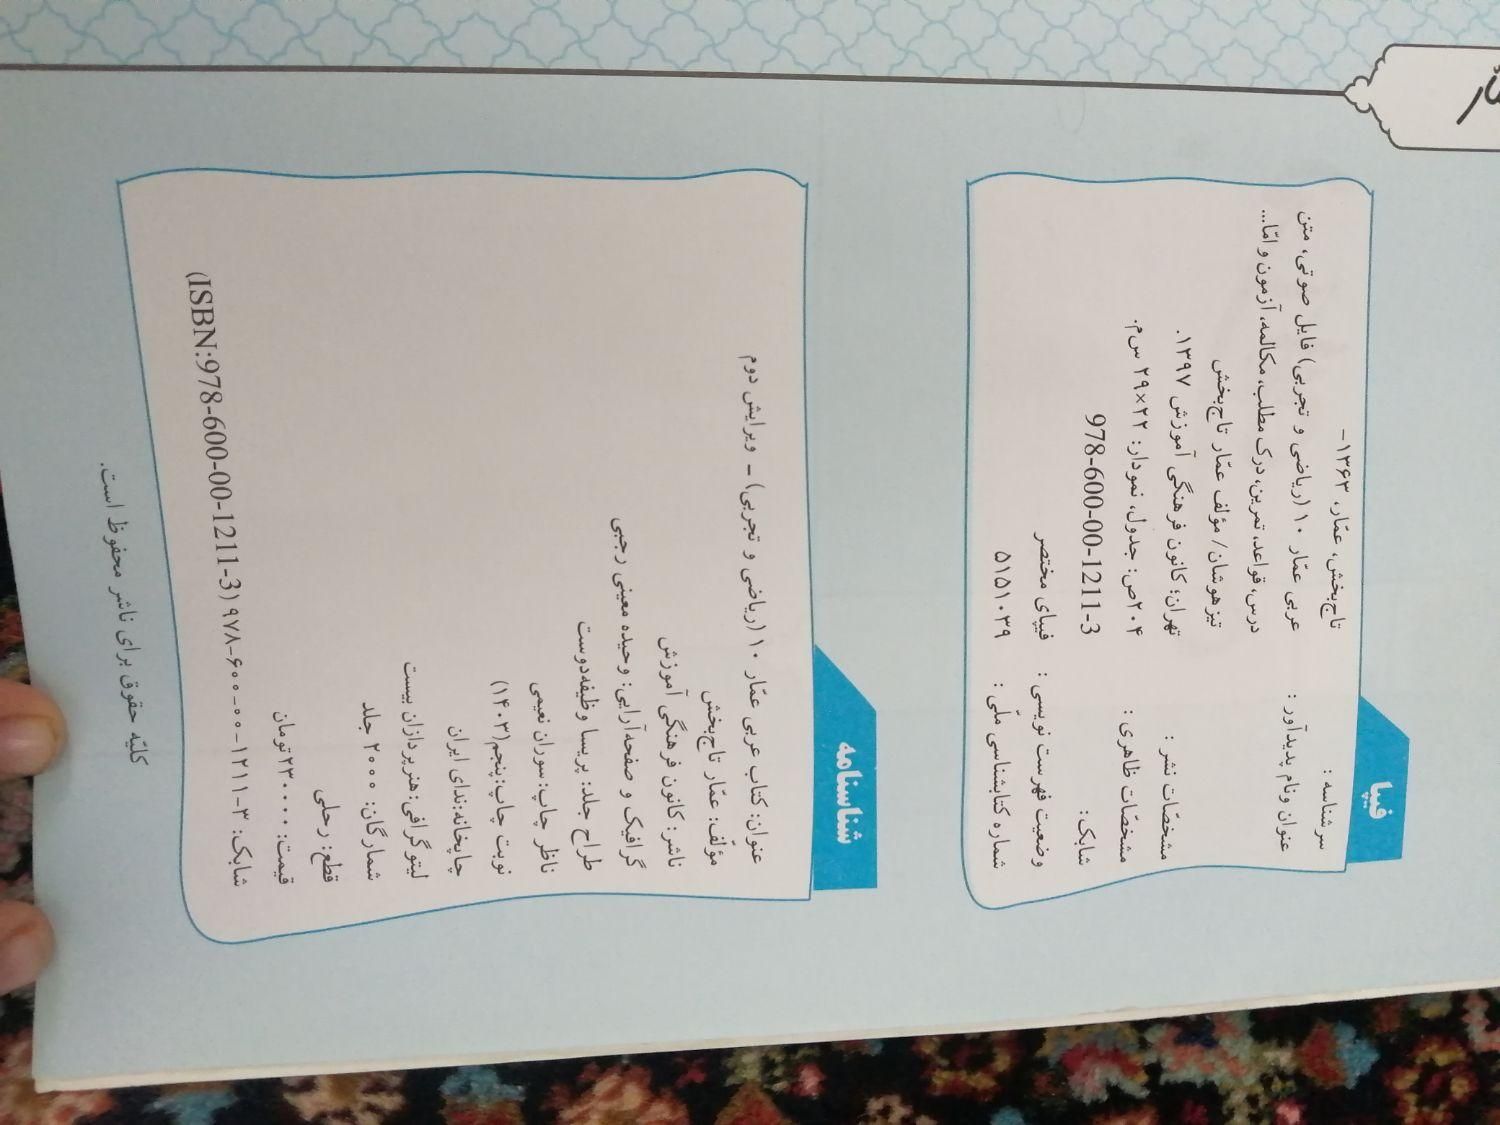 فیپا
سرشناسه : تاج‌بخش، عمّار، ۱۳۶۳-
عنوان ونام پدیدآور : عربی عمّار ۱۰ (ریاضی و تجربی) فایل صوتی، متن
درس، قواعد، تمرین، درک مطلب، مکالمه، آزمون و امّا...
تیزهوشان/ مؤلف عمّار تاج‌بخش
مشخصّات نشر : تهران؛ کانون فرهنگی آموزش ۱۳۹۷.
مشخصّات ظاهری : ۲۰۴ص: جدول، نمودار: ۲۲×۲۹ س‌م.
شابک: 978-600-00-1211-3
وضعیت فهرست نویسی : فیپای مختصر
شماره کتابشناسی ملّی : ۵۱۵۱۰۳۹
شناسنامه
عنوان: کتاب عربی عمّار ۱۰ (ریاضی و تجربی) - ویرایش دوم
مؤلّف: عمّار تاج‌بخش
ناشر: کانون فرهنگی آموزش
گرافیک و صفحه‌آرایی: وحیده معینی رجبی
طراح جلد: پریسا وظیفه‌دوست
ناظر چاپ: سوران نعیمی
نوبت چاپ: پنجم(۱۴۰۳)
چاپخانه:ندای ایران
لیتوگرافی: هنرپردازان بیست
شمارگان: ۲۰۰۰ جلد
قطع: رحلی
قیمت: ۲۳۰۰۰۰تومان
شابک: ۳-۱۲۱۱-۰۰-۶۰۰-۹۷۸ (ISBN:978-600-00-1211-3)
کلیّه حقوق برای ناشر محفوظ است.